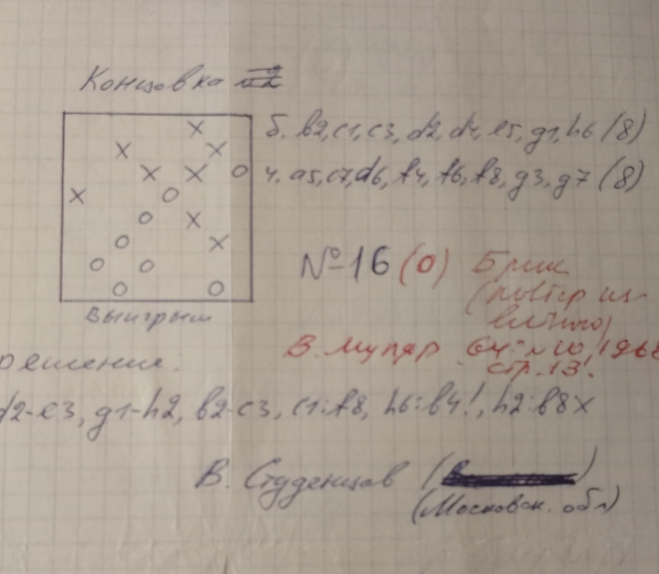 Концовка №2
б. b2, c1, c3, d2, d4, e5, g1, h6 (8)
ч. a5, c7, d6, f4, f6, f8, g3, g7 (8)
№16 (0) Брик
(повтор из-
вестного)
В. Муляр "64" №10, 1968
стр. 13.
Выигрыш
решение.
d2-e3, g1-h2, b2-c3, c1:f8, h6:b4!, h2:b8x
В. Студенцов
(Московск. обл)